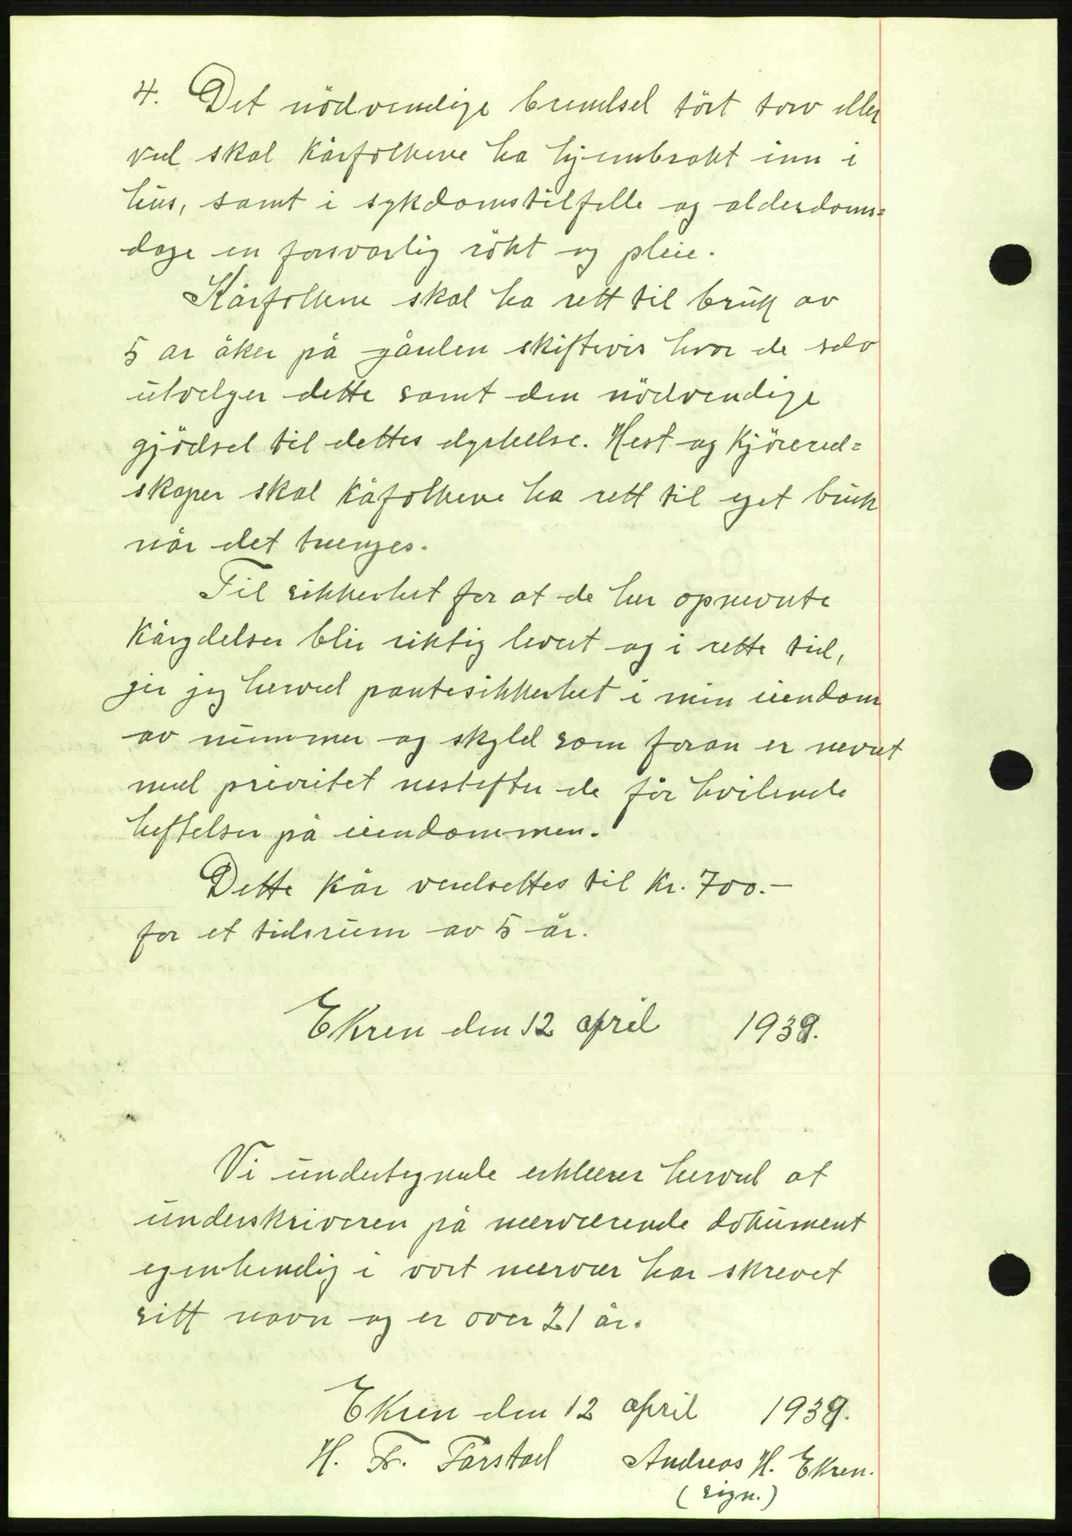 4. Det nödvendige brendsel tört torv eller
ved skal Kårfolkene ha hjembrakt inn i
hus, samt i sykdomstilfelle og alderdoms=
dage en forsvarlig rökt og pleie.
Kårfolkene skal ha rett til bruk av
5 ar åker på gården skiftevis hvor de selv
utvelger dette samt den nödvendige
gjödsel til dettes dyrkelse. Hest og Kjörered=
skaper skal Kåfolkene ha rett til eget bruk
når det trenges.
Til sikkerhet for at de her opnevnte
Kårydelser blir riktig levert og i rette tid,
gir jeg herved pantesikkerhet i min eiendom
av nummer og skyld som foran er nevnt
med prioritet nestefter de för hvilende
heftelser på eiendommen.
Dette Kår verdsettes til kr. 700.-
for et tidsrum av 5 år.
Ekren den 12 april 1939.
Vi undertegnede erklærer herved at
underskriveren på nærværende dokument
egenhendig i vort nærvær har skrevet
sitt navn og er over 21 år.
Ekren den 12 april 1939.
H. Fr. Farstad Andreas H. Ekren.
(sign.)